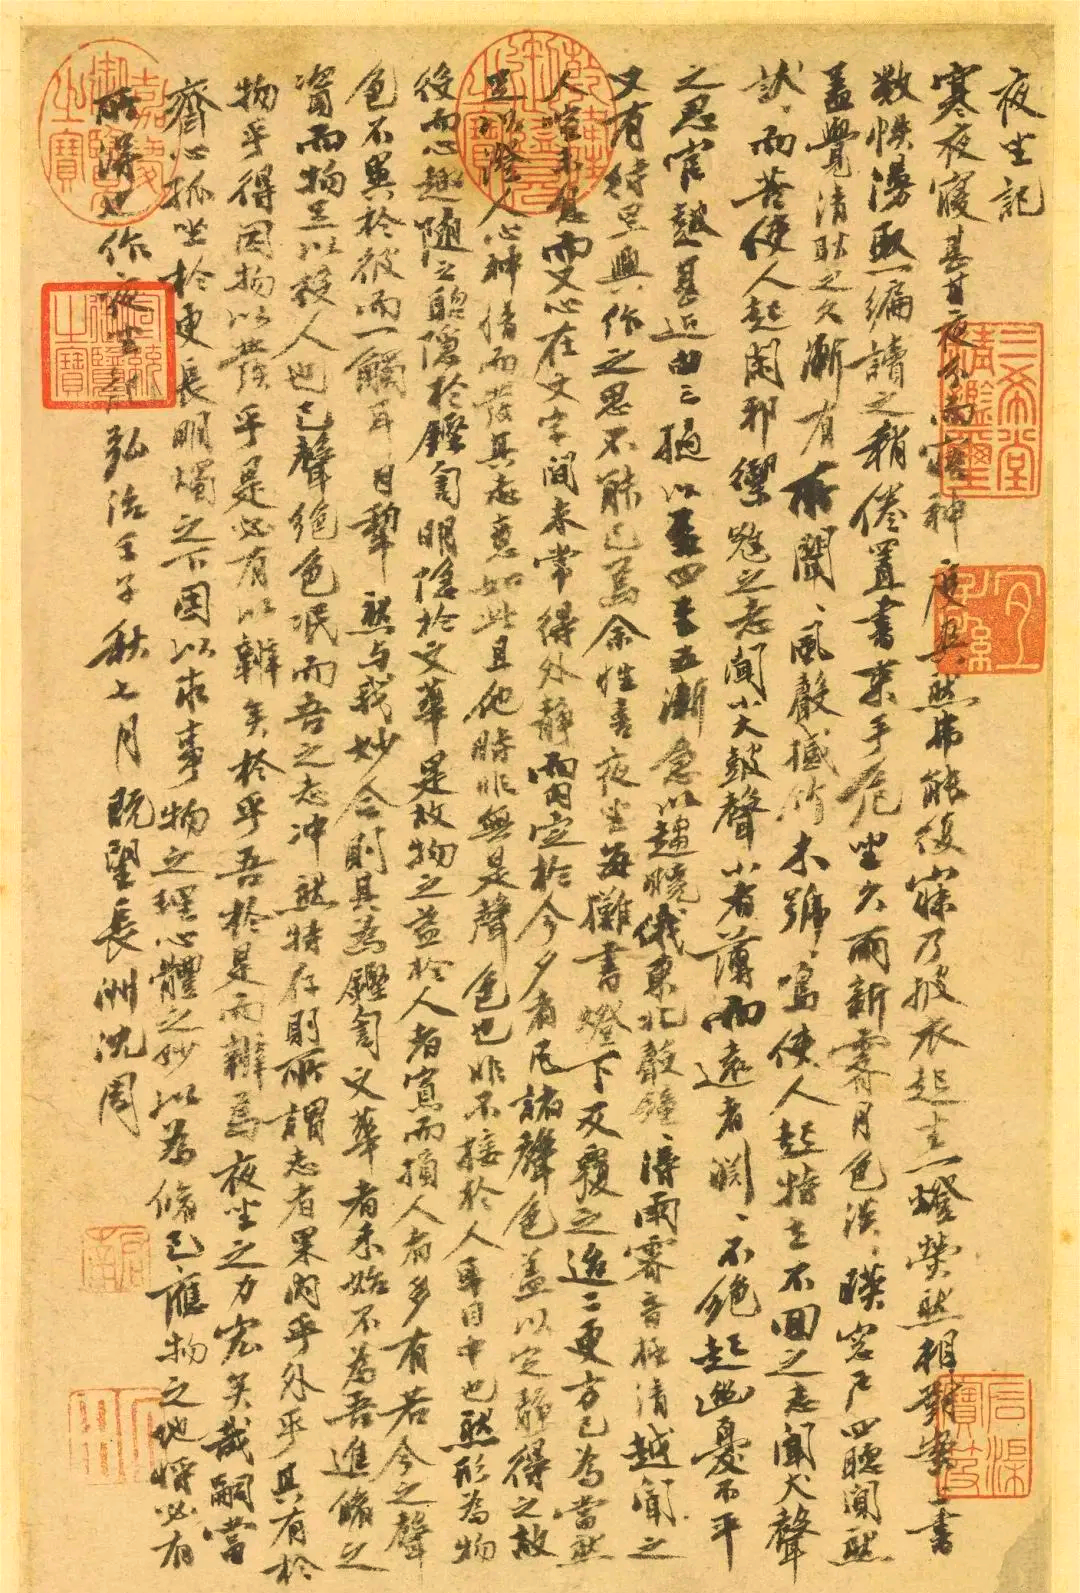 夜坐記
寒夜寢甚甘夜分而寤神度爽然弗能復寐乃披衣起坐一燈熒然相對案上書
數帙漫取一編讀之稍倦置書束手危坐久雨新霽月色淡淡映窗戶四聽闃然
蓋覺清耿之久漸有所聞聞風聲撼竹木號號鳴使人起特立不回之志聞犬聲
狀狀而苦使人起閑邪禦寇之志聞小大鼓聲小者薄而遠者淵淵不絕起幽憂不平
之思官鼓甚近由三撾以至四至五漸急以趨曉俄東北聲鐘鐘得雨霽音極清越聞之
又有待旦興作之思不能已焉余性喜夜坐每攤書燈下反覆之迨二更方已為當然
人喧未息而又心在文字間未常得外靜而內定於今夕者凡諸聲色蓋以定靜得之故
足以澄人心神情而發其志意如此且他時非無是聲色也非不接於人耳目中也然形為物
役而心趣隨之聰隱於鏗訇明隱於文華是故物之益於人者寡而損人者多有若今之聲
色不異於彼而一觸耳目犁然與我妙合則其為鏗訇文華者未始不為吾進修之
資而物足以役人也已聲絕色泯而吾之志沖然特存則所謂志者果內乎外乎其有於
物乎得因物以發乎是必有以辨矣於乎吾於是而辨焉夜坐之力宏矣哉嗣當
齋心孤坐於更長明燭之下因以求事物之理心體之妙以為修己應物之地將必有
所得也作夜坐記弘治壬子秋七月既望長洲沈周
嘉慶御覽之寶
乾隆御覽之寶
宣統御覽之寶
三希堂精鑑璽
宜子孫
石渠寶笈